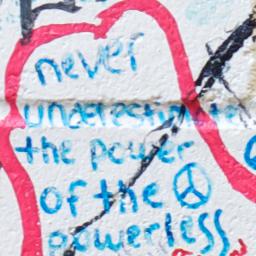 never
underestimate
the power
of the
powerless